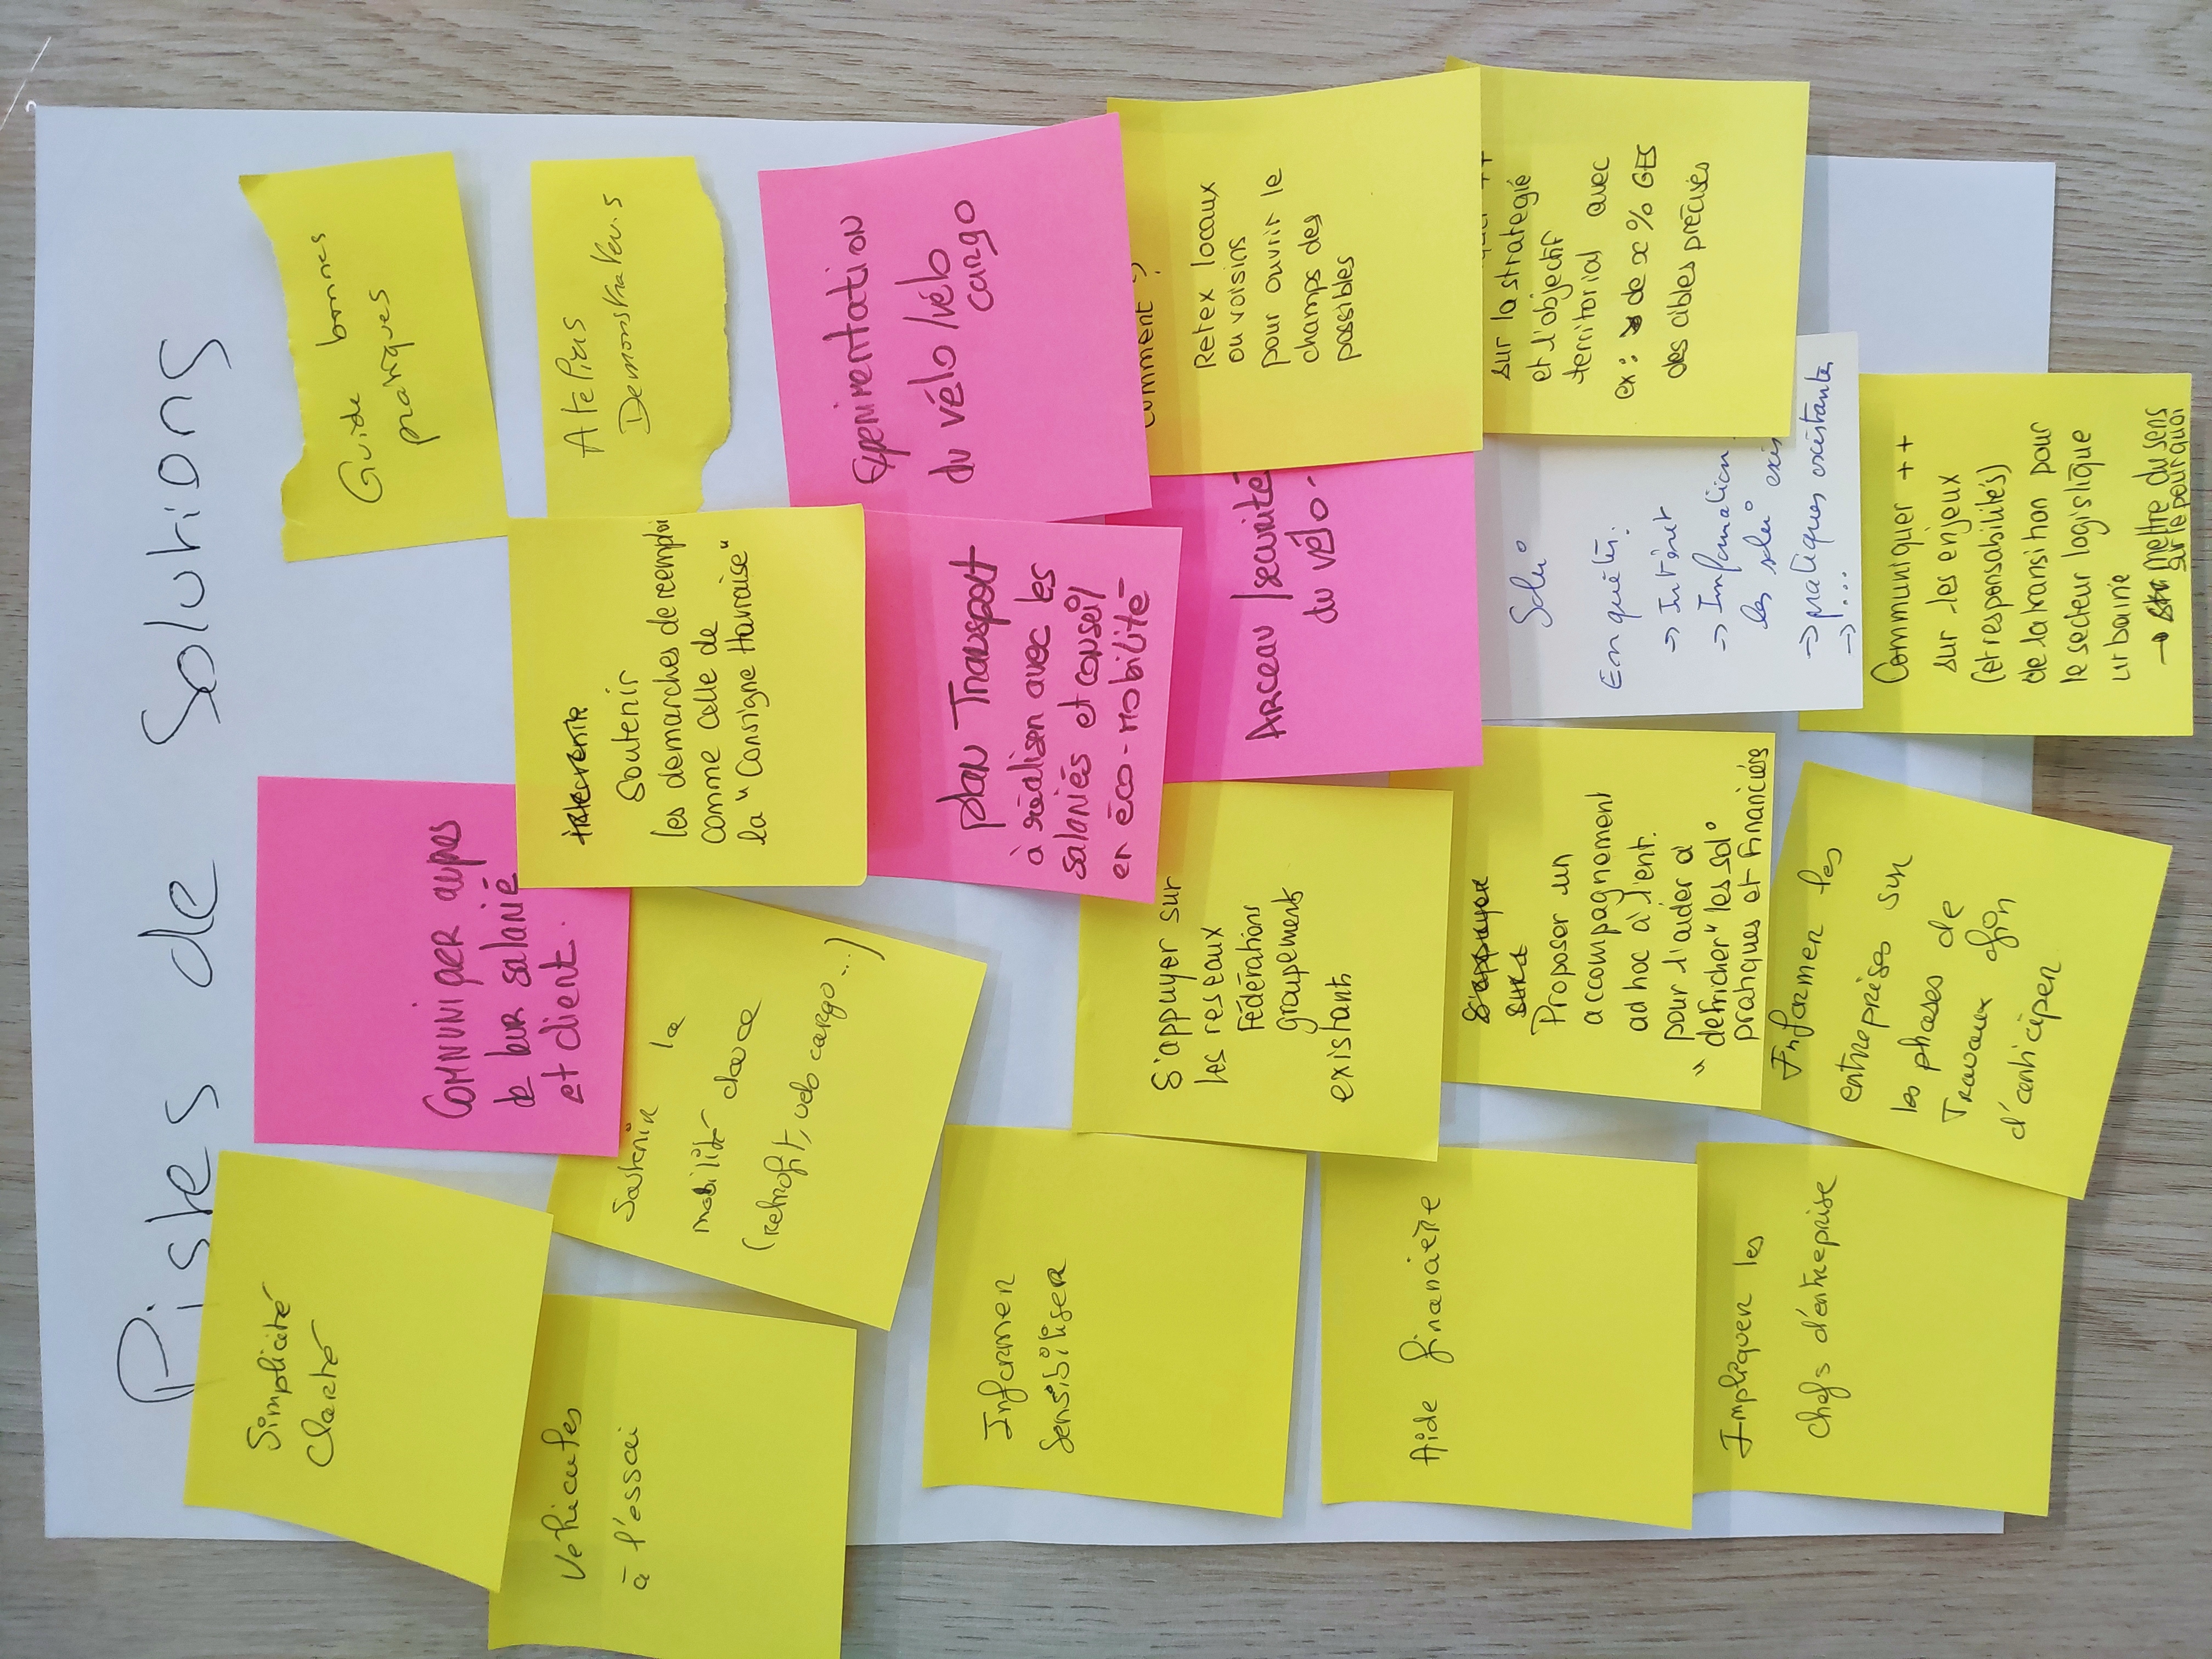 Pistes de Solutions
Simplicité
Clarté
Communiquer aupres
de leur salarié
et client.
Guide bonnes
pratiques
Véhicules
à l'essai
Soutenir la
mobilité douce
(retrofit, velo cargo...)
Soutenir
les démarches de reemploi
comme celle de
la "Consigne Havraise"
Ateliers
Demonstrateurs
Informer
Sensibiliser
plan Transport
à réaliser avec les
salariés et conseil
en éco-mobilité
Experimentation
du vélo/vélo
cargo
S'appuyer sur
les reseaux
Fédérations
groupements
existants
Arceau sécurité
du vélo.
comment ?
Retex locaux
ou voisins
pour ouvrir le
champs des
possibles
Aide financière
S'appuyer
sur
Proposer un
accompagnement
ad hoc à l'ent.
pour l'aider à
"défricher" les sol°
pratiques et financiés
Solu°
Enquêtes:
→ Intérêt
→ Information
les solu° exis
→ pratiques existantes
→ ...
++
sur la stratégie
et l'objectif
territorial avec
ex: ↘ de x % GES
des cibles précises
Impliquer les
chefs d'entreprise
Informer les
entreprises sur
les phases de
Travaux afin
d'anticiper
Communiquer ++
sur les enjeux
(et responsabilités)
de la transition pour
le secteur logistique
urbaine
→ mettre du sens
sur le pourquoi